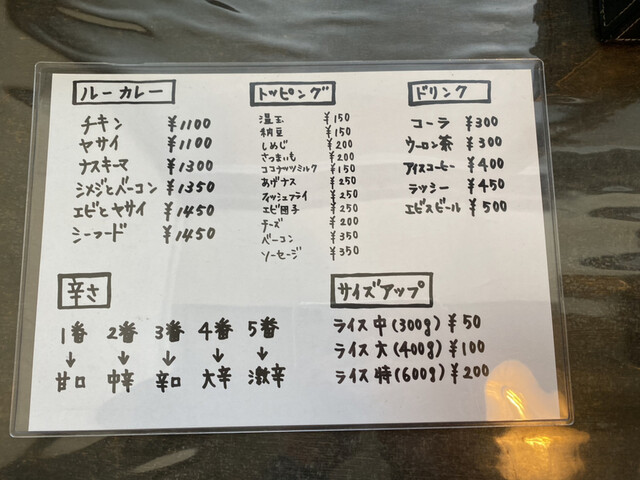 ルーカレー
チキン ¥1100
ヤサイ ¥1100
ナスキーマ ¥1300
シメジとベーコン ¥1350
エビとヤサイ ¥1450
シーフード ¥1450
トッピング
温玉 ¥150
納豆 ¥150
しめじ ¥200
さつまいも ¥200
ココナッツミルク ¥150
あげナス ¥250
フィッシュフライ ¥250
エビ団子 ¥250
チーズ ¥200
ベーコン ¥350
ソーセージ ¥350
ドリンク
コーラ ¥300
ウーロン茶 ¥300
アイスコーヒー ¥400
ラッシー ¥450
エビスビール ¥500
辛さ
1番 2番 3番 4番 5番
↓ ↓ ↓ ↓ ↓
甘口 中辛 辛口 大辛 激辛
サイズアップ
ライス 中(300g) ¥50
ライス 大(400g) ¥100
ライス 特(600g) ¥200